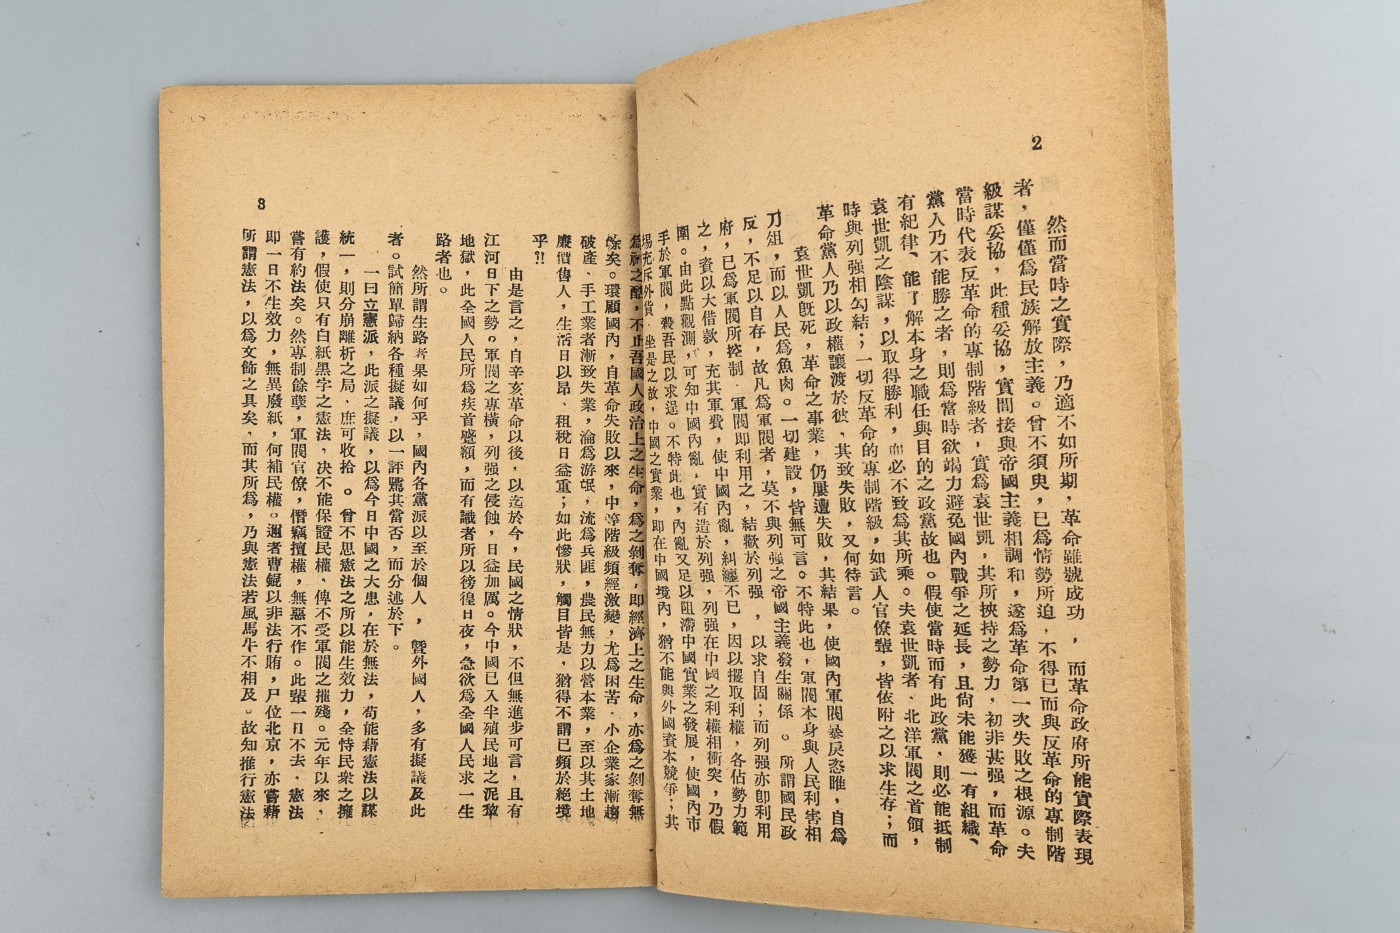 2
然而當時之實際，乃適不如所期，革命雖號成功，而革命政府所能實際表現
者，僅僅爲民族解放主義。曾不須臾，已爲情勢所迫，不得已而與反革命的專制階
級謀妥協，此種妥協，實間接與帝國主義相調和，遂爲革命第一次失敗之根源。夫
當時代表反革命的專制階級者，實爲袁世凱，其所挾持之勢力，初非甚强，而革命
黨人乃不能勝之者，則爲當時欲竭力避免國內戰爭之延長，且尙未能獲一有組織、
有紀律、能了解本身之職任與目的之政黨故也。假使當時而有此政黨，則必能抵制
袁世凱之陰謀，以取得勝利，而必不致爲其所乘。夫袁世凱者、北洋軍閥之首領，
時與列强相勾結；一切反革命的專制階級，如武人官僚輩，皆依附之以求生存；而
革命黨人乃以政權讓渡於彼、其致失敗，又何待言。
袁世凱旣死，革命之事業，仍屢遭失敗，其結果，使國內軍閥暴戾恣睢，自爲
刀俎，而以人民爲魚肉。一切建設，皆無可言。不特此也，軍閥本身與人民利害相
反，不足以自存，故凡爲軍閥者，莫不與列强之帝國主義發生關係。所謂國民政
府，已爲軍閥所控制．軍閥即利用之，結歡於列强，以求自固；而列强亦卽利用
之，資以大借款，充其軍費，使中國內亂，糾纏不已，因以攫取利權，各佔勢力範
圍。由此點觀測，可知中國內亂，實有造於列强，列强在中國之利權相衝突，乃假
手於軍閥，殺吾民以求逞。不特此也，內亂又足以阻滯中國實業之發展，使國內市
場充斥外貨．坐是之故，中國之實業，即在中國境內，猶不能與外國資本競爭；其
3
爲禍之酷，不止吾國人政治上之生命，爲之剝奪，即經濟上之生命，亦爲之剝奪無
餘矣。環顧國內，自革命失敗以來，中等階級頻經激變，尤爲困苦．小企業家漸趨
破產、手工業者漸致失業，淪爲游氓，流爲兵匪，農民無力以營本業，至以其土地
廉價售人，生活日以昂、租稅日益重；如此慘狀，觸目皆是，猶得不謂已頻於絕境
乎!!
由是言之，自辛亥革命以後，以迄於今，民國之情狀，不但無進步可言，且有
江河日下之勢。軍閥之專橫，列强之侵蝕，日益加厲。今中國已入半殖民地之泥犂
地獄，此全國人民所爲疾首蹙額，而有識者所以徬徨日夜，急欲爲全國人民求一生
路者也。
然所謂生路者果如何乎，國內各黨派以至於個人，曁外國人，多有擬議及此
者。試簡單歸納各種擬議，以一評隲其當否，而分述於下。
一曰立憲派，此派之擬議，以爲今日中國之大患，在於無法，苟能藉憲法以謀
統一，則分崩離析之局．庶可收拾。曾不思憲法之所以能生效力，全恃民衆之擁
護，假使只有白紙黑字之憲法、決不能保證民權、俾不受軍閥之摧殘。元年以來，
嘗有約法矣。然專制餘孽，軍閥官僚，僭竊擅權，無惡不作。此輩一日不去、憲法
即一日不生效力，無異廢紙，何補民權。邇者曹錕以非法行賄，尸位北京，亦嘗藉
所謂憲法，以爲文飾之具矣．而其所爲，乃與憲法若風馬牛不相及。故知推行憲法